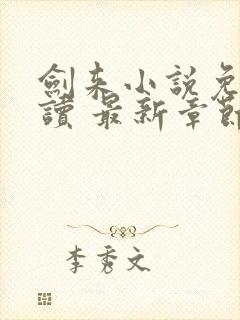 劍来小說免
讀 最新章節
李秀文